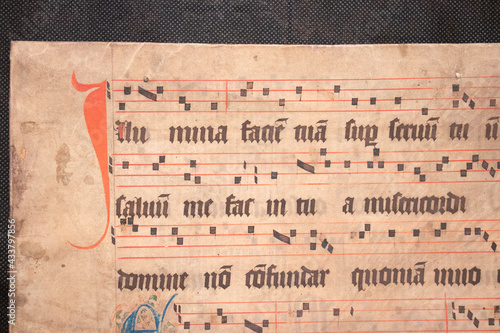 Illu mina faciē tuā sup̲ seruū tu ū
saluū me fac in tu a misericordi
domine nō cōfundar quoniā inuo
433797856